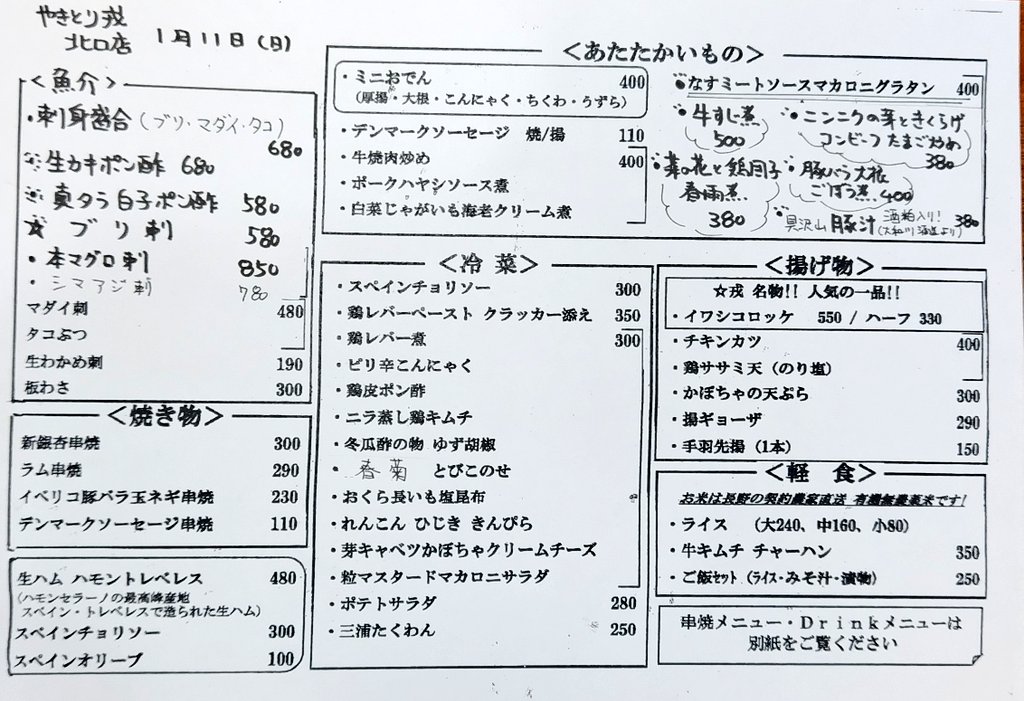 やきとり戎
北口店 1月11日(日)
<魚介>
・刺身盛合(ブリ・マダイ・タコ)
680
生カキポン酢 680
真タラ白子ポン酢 580
☆ ブリ刺 580
・本マグロ刺 850
・シマアジ刺 780
マダイ刺 480
タコぶつ
生わかめ刺 190
板わさ 300
<焼き物>
新銀杏串焼 300
ラム串焼 290
イベリコ豚バラ玉ネギ串焼 230
デンマークソーセージ串焼 110
生ハム ハモントレベレス 480
(ハモンセラーノの最高峰産地
スペイン・トレベレスで造られた生ハム)
スペインチョリソー 300
スペインオリーブ 100
<あたたかいもの>
・ミニおでん 400
(厚揚・大根・こんにゃく・ちくわ・うずら)
・デンマークソーセージ 焼/揚 110
・牛焼肉炒め 400
・ポークハヤシソース煮
・白菜じゃがいも海老クリーム煮
・なすミートソースマカロニグラタン 400
・牛すじ煮
500
・ニンニクの芽ときくらげ
コンビーフたまご炒め
380
・菜の花と鶏団子
春雨煮
380
・豚バラ大根
ごぼう煮 400
・具沢山 豚汁 酒粕入り! 380
(大和川酒造より)
<冷 菜>
・スペインチョリソー 300
・鶏レバーペースト クラッカー添え 350
・鶏レバー煮 300
・ピリ辛こんにゃく
・鶏皮ポン酢
・ニラ蒸し鶏キムチ
・冬瓜酢の物 ゆず胡椒
・春菊 とびこのせ
・おくら長いも塩昆布
・れんこん ひじき きんぴら
・芽キャベツかぼちゃクリームチーズ
・粒マスタードマカロニサラダ
・ポテトサラダ 280
・三浦たくわん 250
<揚げ物>
☆戎 名物!! 人気の一品!!
・イワシコロッケ 550 / ハーフ 330
・チキンカツ 400
・鶏ササミ天(のり塩)
・かぼちゃの天ぷら 300
・揚ギョーザ 290
・手羽先揚(1本) 150
<軽 食>
お米は長野の契約農家直送 有機無農薬米です!
・ライス (大240、中160、小80)
・牛キムチ チャーハン 350
・ご飯セット(ライス・みそ汁・漬物) 250
串焼メニュー・Drinkメニューは
別紙をご覧ください